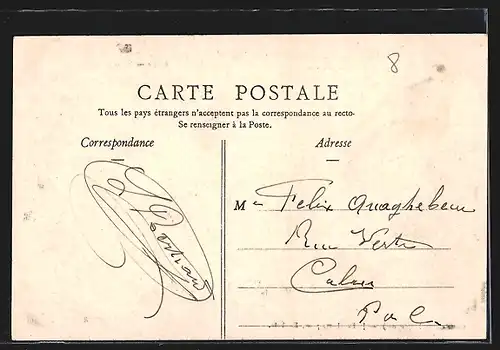 8
CARTE POSTALE
Tous les pays étrangers n'acceptent pas la correspondance au recto-
Se renseigner à la Poste.
Correspondance
Adresse
M Felix
Rue Verte
Calais
P a C.